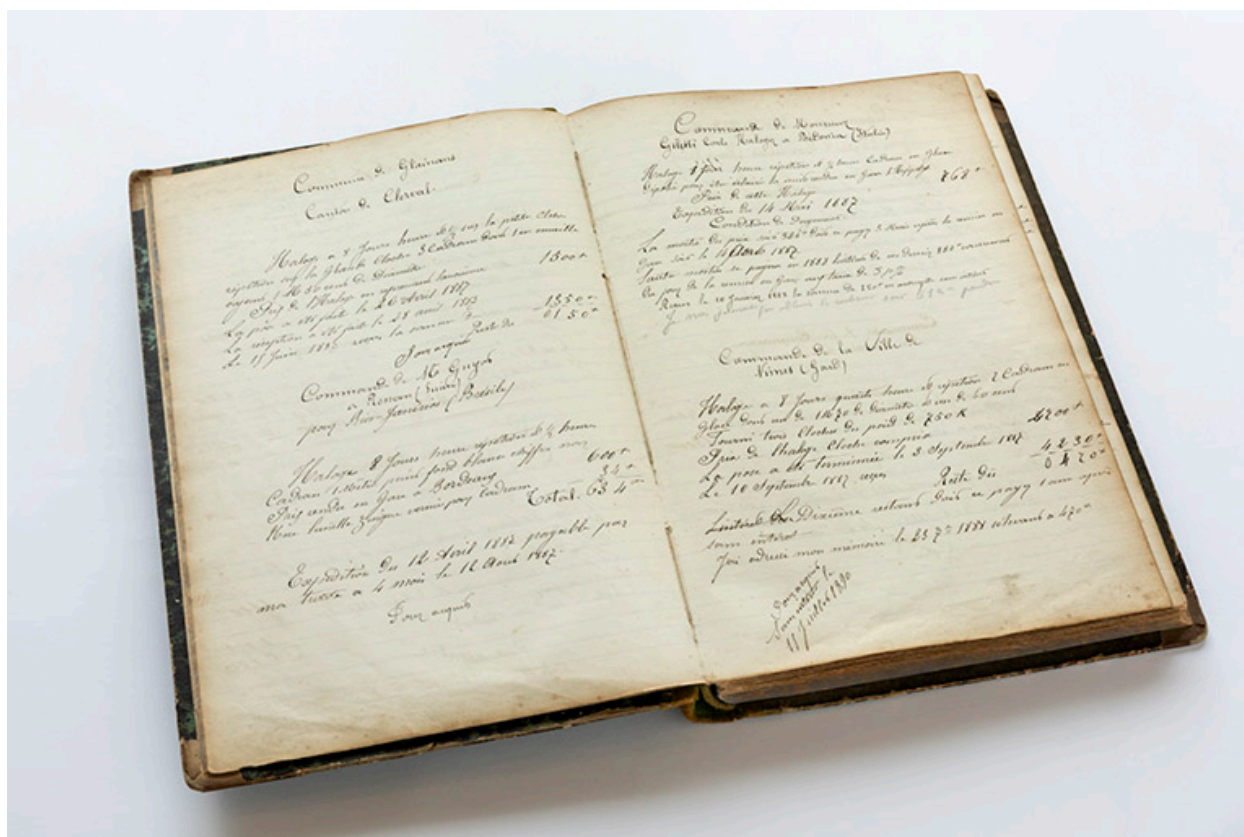 Commune de Glainans
Canton de Clerval.
Horloge a 8 Jours heure et ½ sur la petite cloche
répétition sur la grande cloche 3 Cadrans dont 1 en émaille
ayant 1 M 50 cent de diamètre
Prix de l'horloge en reprenant l'ancienne 1300
La pose a été faite le 26 Avril 1887
La réception a été faite le 28 avril 1887
Le 15 Juin 1887 reçu la somme de 1350
Reste du 0150
Pour acquit
Commande de Mr Guyot
a Renan (Suisse)
pour Rio-Janeiro (Brésil)
Horloge 8 Jours heure répétition et ½ heure
Cadran 1 Mètre peint fond blanc chiffres noir
Prix rendue en Gare a Bordeaux 600
Une lunette zingue verni pour Cadran 34
Total. 634
Expédition du 12 Avril 1887 payable par
ma traite a 4 mois le 12 Aout 1887.
Pour acquit
Commande de Monsieur
Horloge a (Italie)
Horloge 8 Jours heure répétition et ½ heure Cadran en glace
768
Prix de cette Horloge
Expédition du 14 Mai 1887
Condition de Payement
La moitié du prix soit 384 dois se payer 3 Mois après la remise en
Gare soit le 14 1887.
du jour de la remise en Gare au taux de 5 p%
Reçu le 10 Janvier 1888 la somme de
Commande de la Ville de
Nimes (Gard)
Horloge a 8 Jours quarts heure et répétition 2 Cadrans en
glace dont un de 1 M 70 de diamètre et un de 60 cent
Fourni trois Cloches du poids de 750 K
Prix de l'horloge Cloches compris 4700
La pose a été terminée le 3 Septembre 1887
Le 10 Septembre 1887 reçu 4230
Reste Du 0470
Dixième restant dois se payer
sans intérêt
J'ai adressé mon mémoire le 23 7bre 1888 s'élevant a 470
Pour acquit
18 Juillet 1890